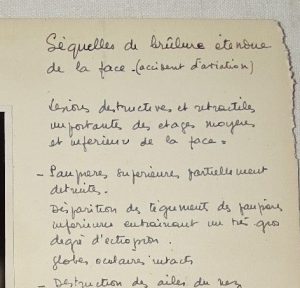 Séquelles de brûlure étendue
de la face - (accident d'aviation)
Lésions destructives et rétractiles
importantes des étages moyens
et inférieur de la face.
- Paupières supérieures partiellement
détruites.
Disparition des téguments des paupières
inférieures entrainant un très gros
degré d'ectropion.
globes oculaires intacts
- Destruction des ailes du nez